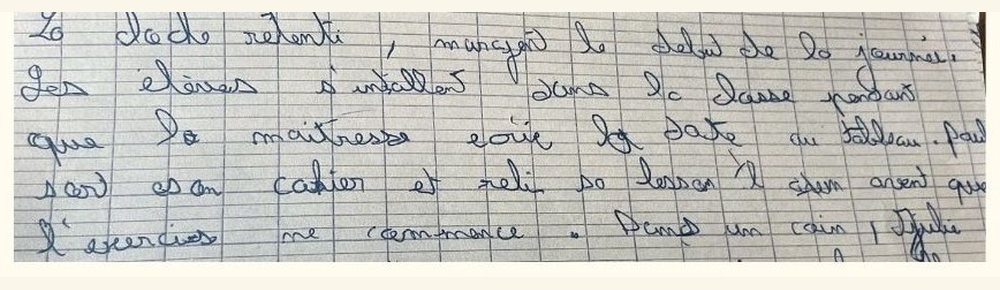 La cloche retenti, marquan le debu de la journée.
Les élèves s'intallent dans la classe pendant
que la maitresse ecrie la date au tableau. Paul
sort son cahier et reli sa lesson avent que
l'exercice ne commmence. Dans un coin, Julie